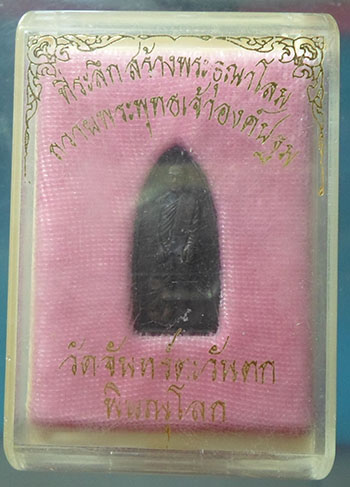 ที่ระลึก สร้างพระอุณาโลม
ถวายพระพุทธเจ้าองค์ปฐม
วัดจันทร์ตะวันตก
พิษณุโลก